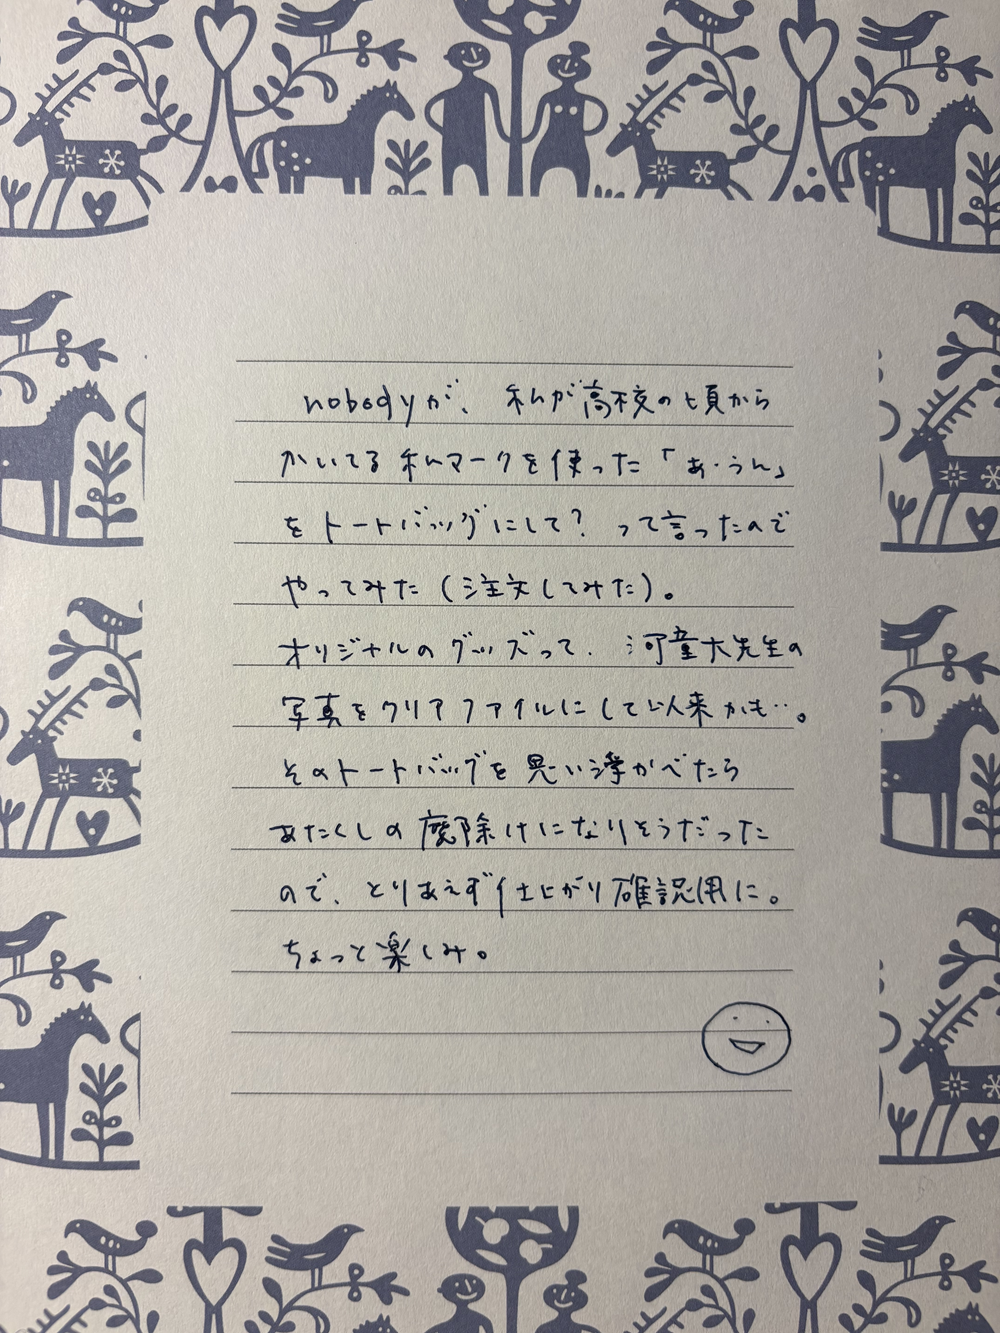 nobodyが、私が高校の頃から
かいてる私マークを使った「あ・うん」
をトートバッグにして？って言ったので
やってみた（注文してみた）。
オリジナルのグッズって、河童大先生の
写真をクリアファイルにして以来かも…。
そのトートバッグを思い浮かべたら
あたくしの魔除けになりそうだった
ので、とりあえず仕上がり確認用に。
ちょっと楽しみ。